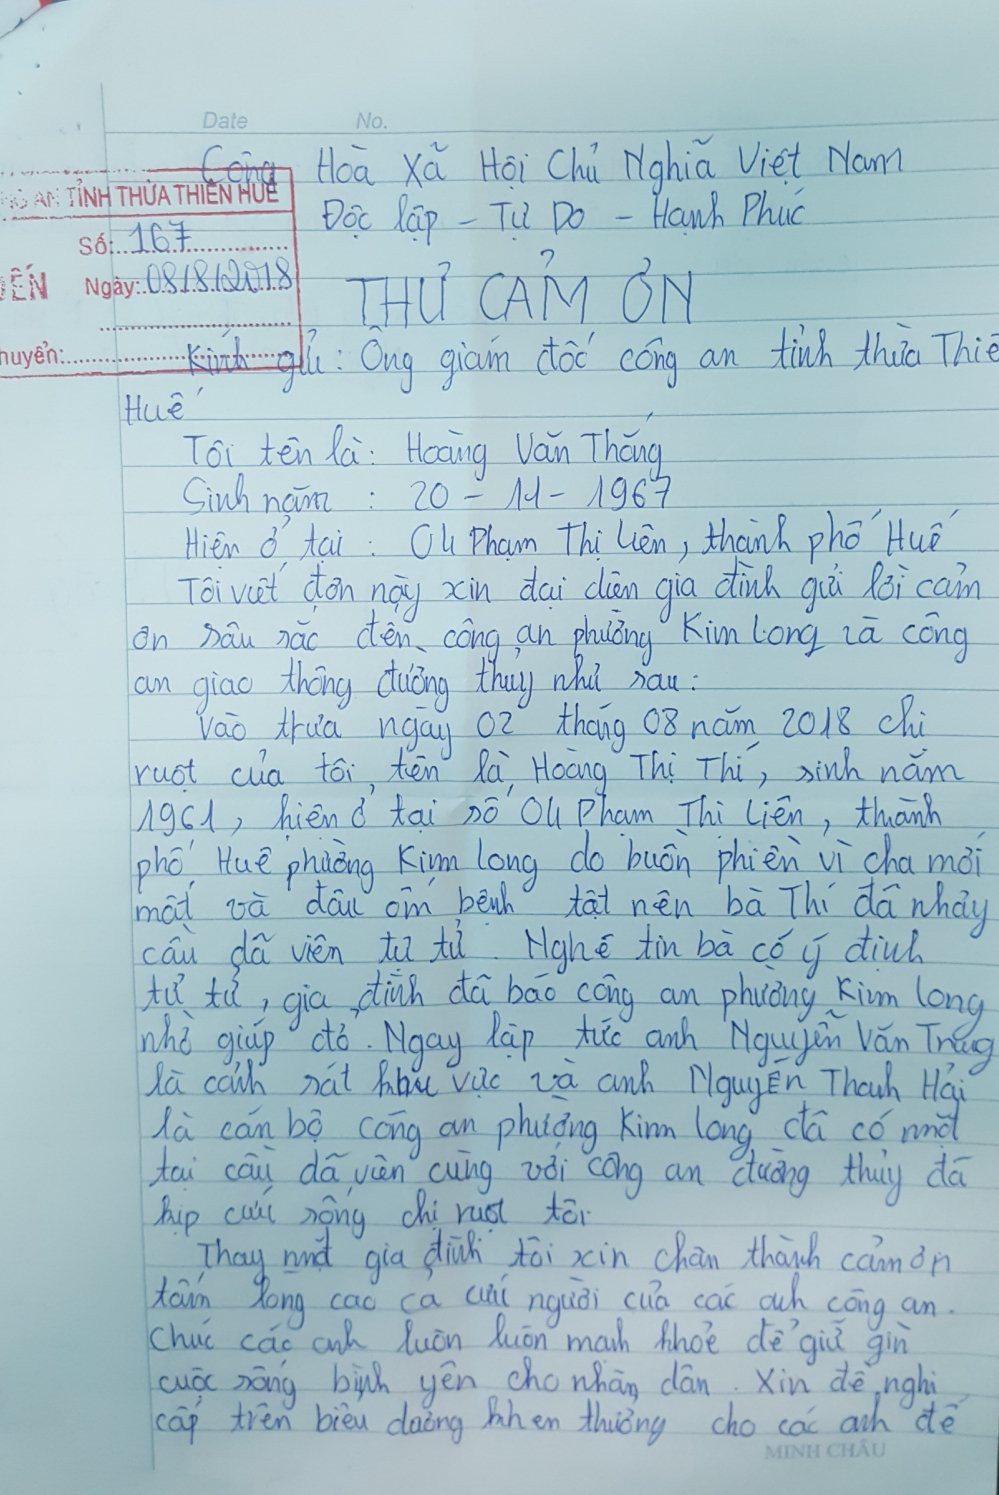 Date No.
Cộng Hoà Xã Hội Chủ Nghĩa Việt Nam
AN TỈNH THỪA THIÊN HUẾ
Độc lập - Tự Do - Hạnh Phúc
Số: 167
ĐẾN Ngày: 08/8/2018
THƯ CẢM ƠN
huyển:
Kính gửi: Ông giám đốc công an tỉnh thừa Thiê
Huế
Tôi tên là: Hoàng Văn Thắng
Sinh năm : 20 - 11 - 1967
Hiện ở tại : 04 Phạm Thị Liên, thành phố Huế
Tôi viết đơn này xin đại diên gia đình gửi lời cảm
ơn sâu sắc đến công an phường Kim Long và công
an giao thông đường thuỷ như sau:
Vào trưa ngày 02 tháng 08 năm 2018 chi
ruột của tôi tên là Hoàng Thị Thí, sinh năm
1961, hiên ở tại số 04 Phạm Thi Liên, thành
phố Huê phường Kim long do buồn phiền vì cha mới
mất và đâu ôm bệnh tật nên bà Thí đã nhảy
cầu dã viên tư tử. Nghe tin bà có ý định
tử tử, gia đình đã báo công an phường Kim long
nhờ giúp đỏ. Ngay lập tức anh Nguyễn Văn Trung
là cảnh sát khu vực và anh Nguyễn Thanh Hải
là cán bộ công an phường Kim long đã có mặt
tại cầu dã viên cùng với công an đường thủy đã
kịp cưú sống chị ruột tôi
Thay mặt gia đình tôi xin chân thành cảm ơn
tấm lòng cao cả cưú người của các anh công an.
Chúc các anh luôn luôn mạnh khoẻ để giữ gìn
cuộc sống bình yên cho nhân dân. Xin đề nghi
cấp trên biểu dương khen thưởng cho các anh để
MINH CHÂU